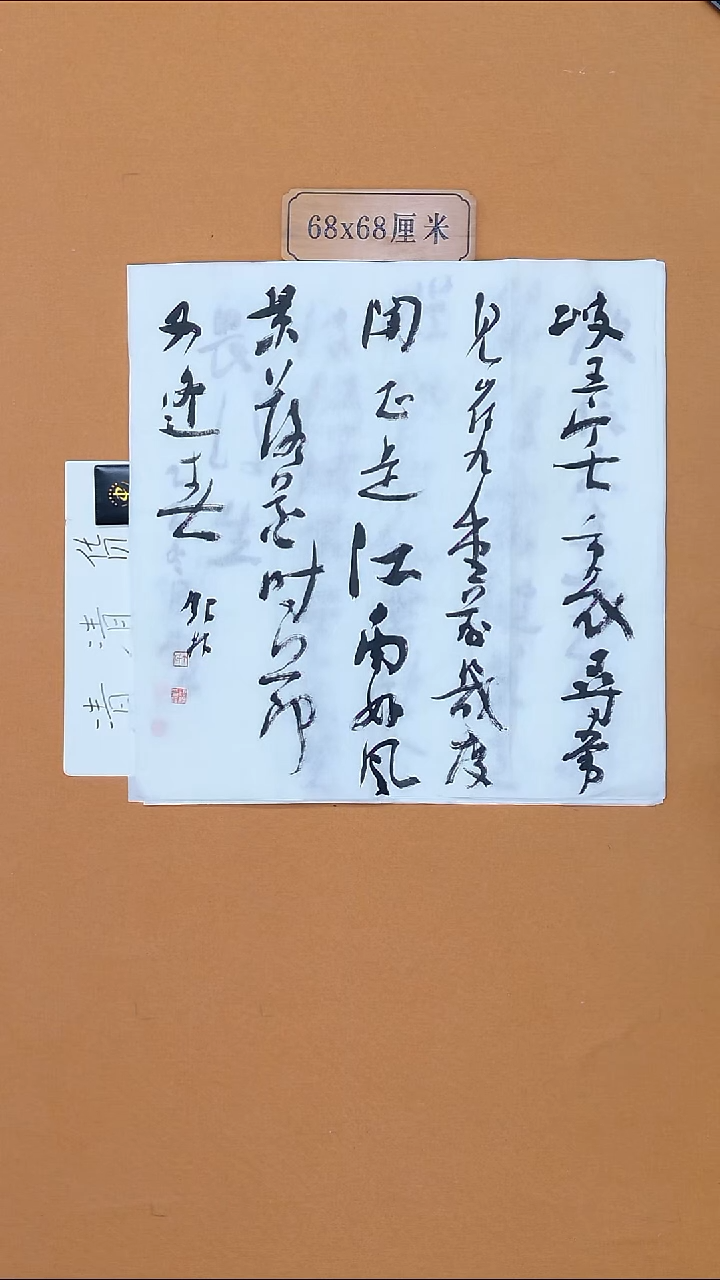 68x68厘米
岐王宅裏尋常
見崔九堂前幾度
闻正是江南好风
景落花时節
又逢君